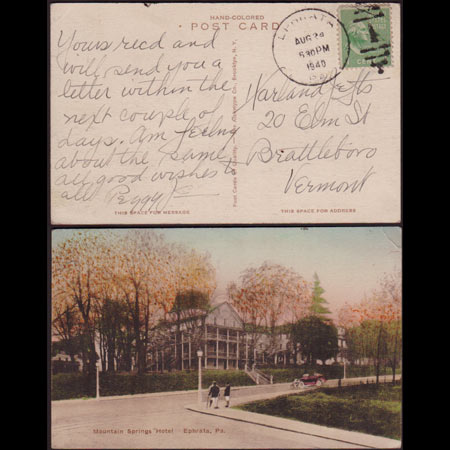 HAND-COLORED
POST CARD
EPHRATA
AUG 24
530PM
1940
PA.
Yours recd and
will send you a
letter within the
next couple of
days. Am feeling
about the same,
all good wishes to
all Peggy E
Harland
20 Elm St
Brattleboro
Vermont
THIS SPACE FOR MESSAGE
THIS SPACE FOR ADDRESS
Mountain Springs Hotel Ephrata, Pa.